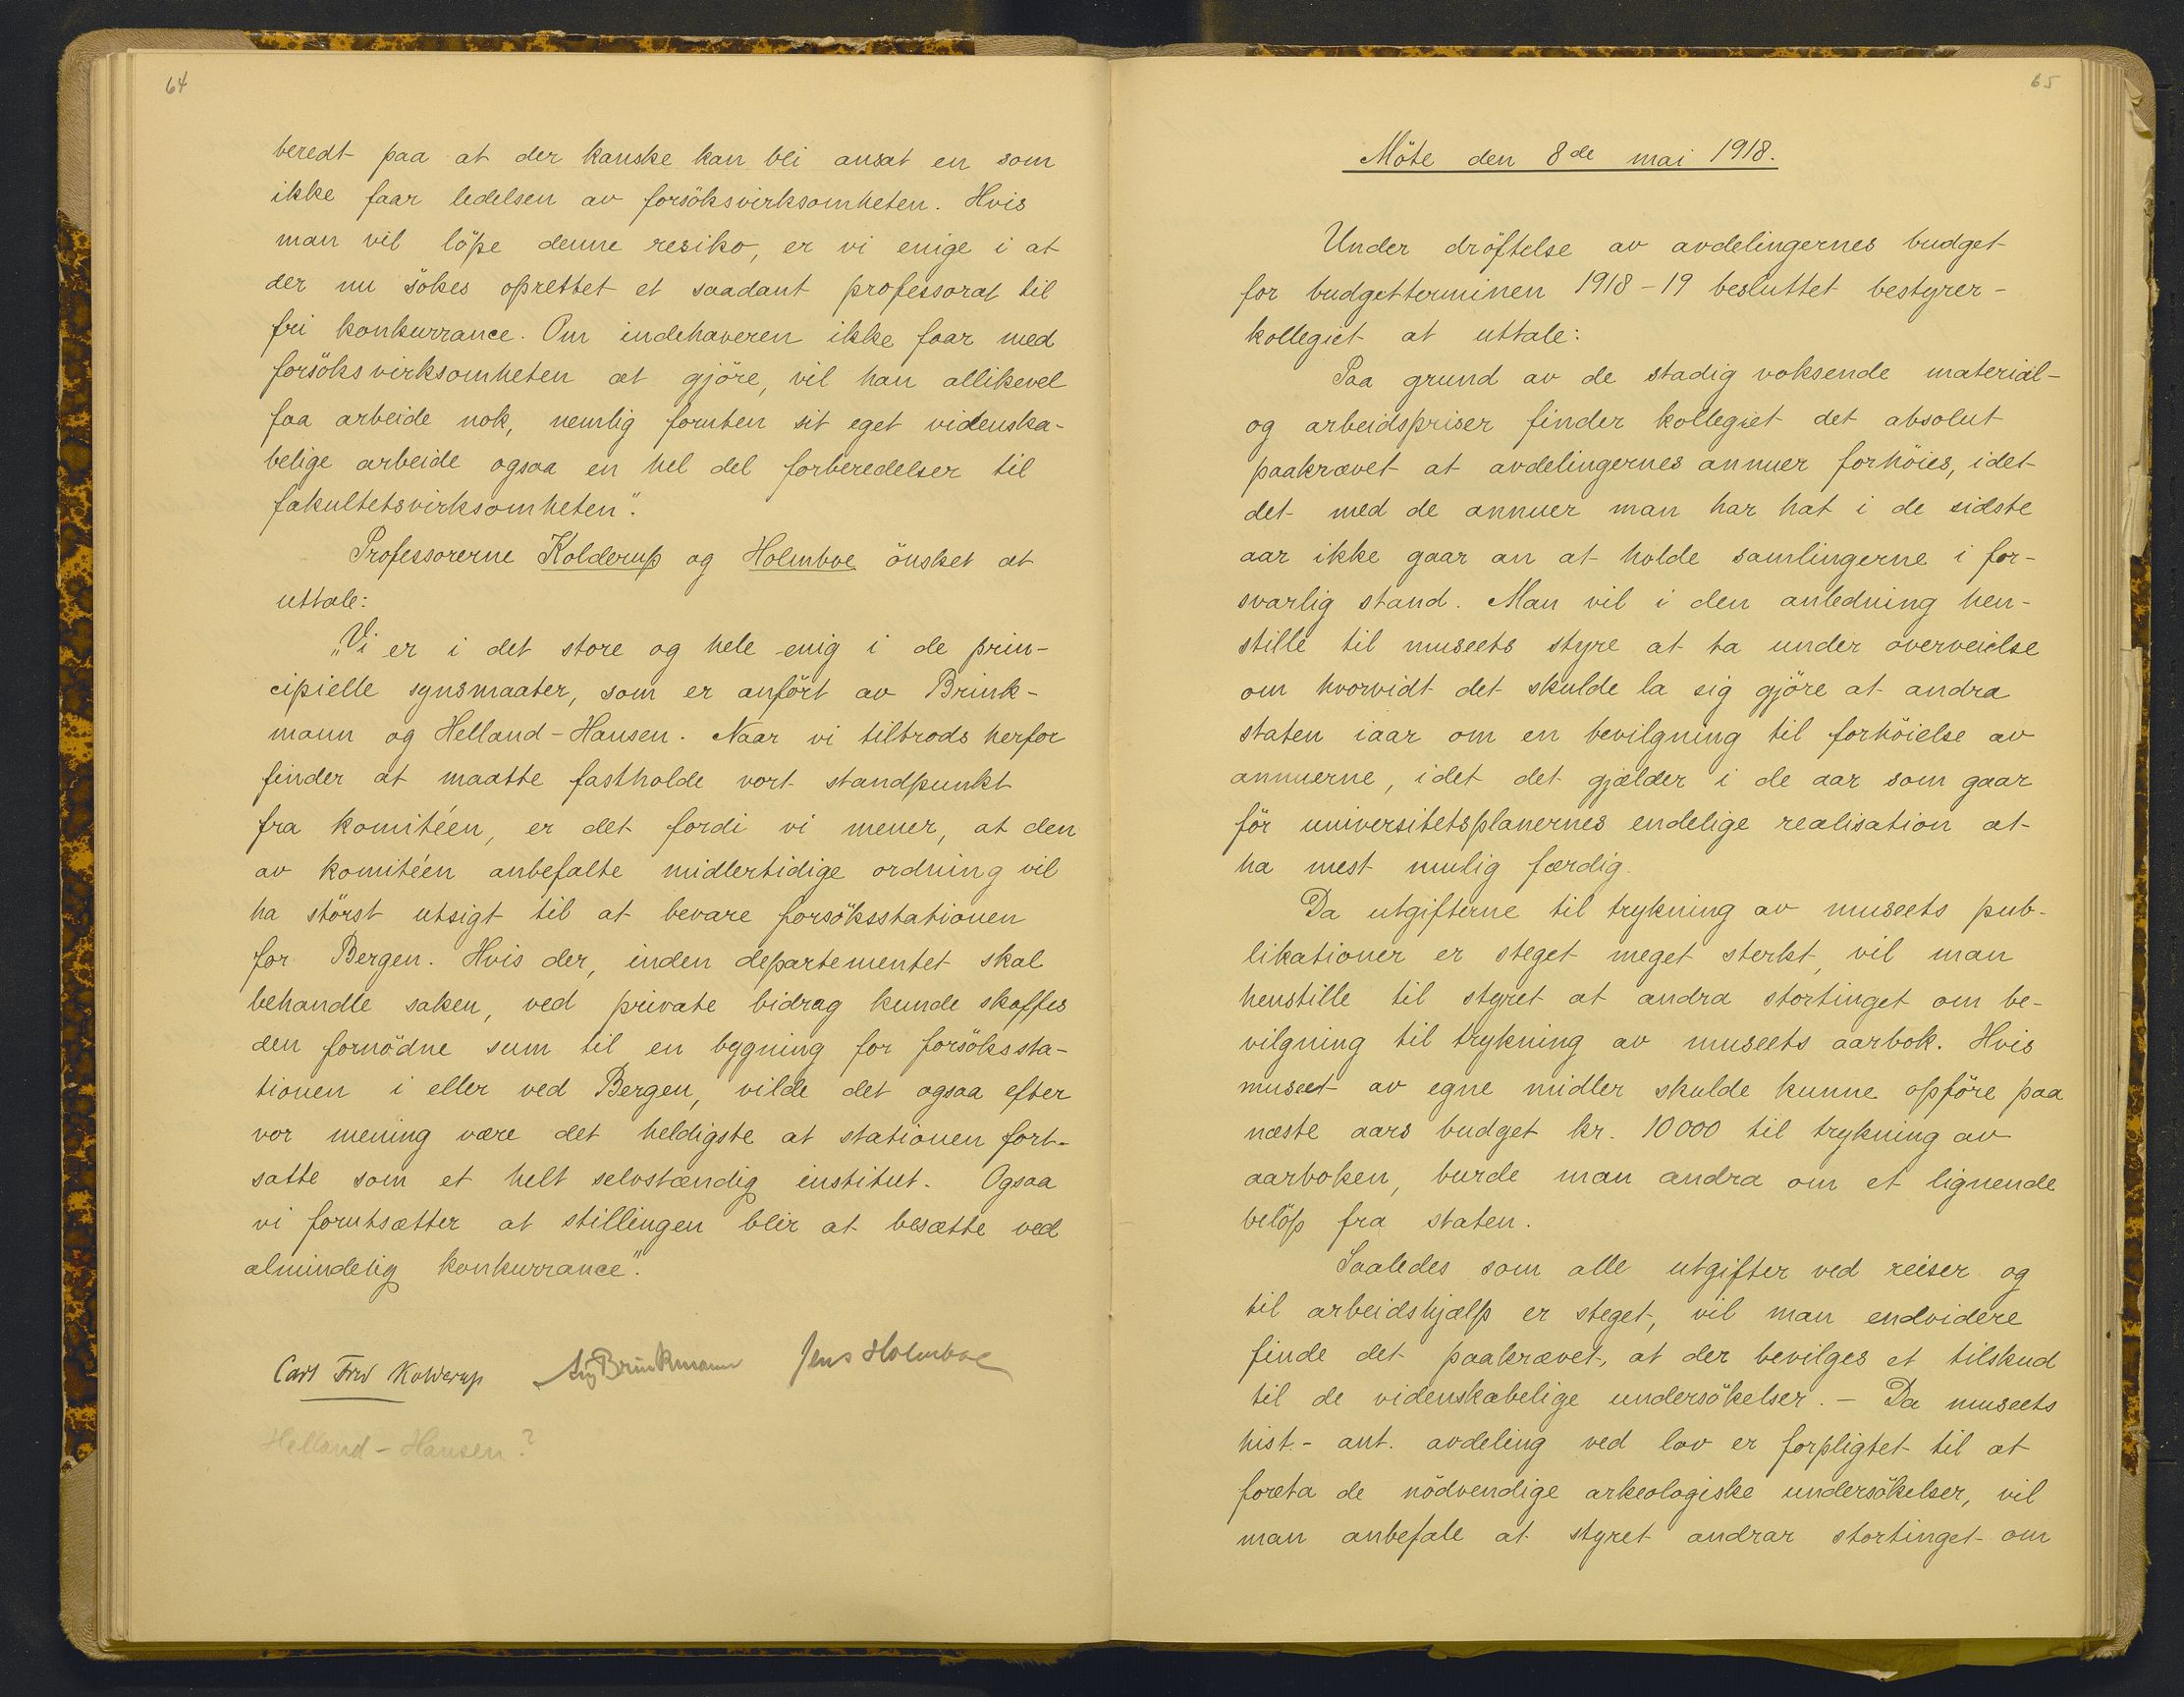 64
beredt paa at der kanske kan bli ansat en som
ikke faar ledelsen av forsöksvirksomheten. Hvis
man vil löpe denne resiko, er vi enige i at
der nu sökes oprettet et saadant professorat til
fri konkurrance. Om indehaveren ikke faar med
forsöksvirksomheten at gjöre, vil han allikevel
faa arbeide nok, nemlig foruten sit eget videnska-
belige arbeide ogsaa en hel del forberedelser til
fakultetsvirksomheten".
Professorerne Kolderup og Holmboe önsket at
uttale:
„Vi er i det store og hele enig i de prin-
cipielle synsmaater, som er anfört av Brink-
mann og Helland-Hansen. Naar vi tiltrods herfor
finder at maatte fastholde vort standpunkt
fra komitéen, er det fordi vi mener, at den
av komitéen anbefalte midlertidige ordning vil
ha störst utsigt til at bevare forsöksstationen
for Bergen. Hvis der, inden departementet skal
behandle saken, ved private bidrag kunde skaffes
den fornödne sum til en bygning for forsökssta-
tionen i eller ved Bergen, vilde det ogsaa efter
vor mening være det heldigste at stationen fort-
satte som et helt selvstændig institut. Ogsaa
vi forutsætter at stillingen blir at besætte ved
almindelig konkurrance".
Carl Fred Kolderup Aug Brinkmann Jens Holmboe
Helland-Hansen?
65
Möte den 8de mai 1918.
Under dröftelse av avdelingernes budget
for budgetterminen 1918-19 besluttet bestyrer-
kollegiet at uttale:
Paa grund av de stadig voksende material-
og arbeidspriser finder kollegiet det absolut
paakrævet at avdelingernes annuer forhöies, idet
det med de annuer man har hat i de sidste
aar ikke gaar an at holde samlingerne i for-
svarlig stand. Man vil i den anledning hen-
stille til museets styre at ta under overveielse
om hvorvidt det skulde la sig gjöre at andra
staten iaar om en bevilgning til forhöielse av
annuerne, idet det gjælder i de aar som gaar
för universitetsplanernes endelige realisation at
ha mest mulig færdig.
Da utgifterne til trykning av museets pub-
likationer er steget meget sterkt, vil man
henstille til styret at andra stortinget om be-
vilgning til trykning av museets aarbok. Hvis
museet av egne midler skulde kunne opföre paa
næste aars budget kr. 10000 til trykning av
aarboken, burde man andra om et lignende
belöp fra staten.
Saaledes som alle utgifter ved reiser og
til arbeidshjælp er steget, vil man endvidere
finde det paakrævet, at der bevilges et tilskud
til de videnskabelige undersökelser. - Da museets
hist.- ant. avdeling ved lov er forpligtet til at
foreta de nödvendige arkeologiske undersökelser, vil
man anbefale at styret andrar stortinget om